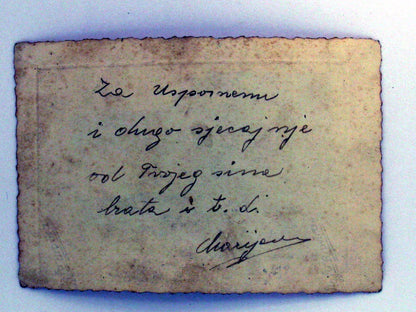 Za Uspomenu
i dugo sjecaj nje
od Tvojeg sina
brata i t. d.
Marijan